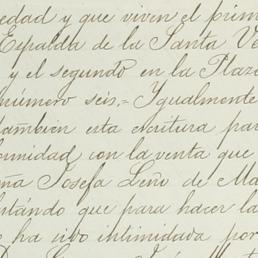 edad y que viven el prim
Espalda de la Santa Ve
y el segundo en la Plaz
número seis.= Igualmente
tambien esta escritura par
formidad con la venta que
ña Josefa Leño de Ma
stándo que para hacer la
o ha sido intimidada por